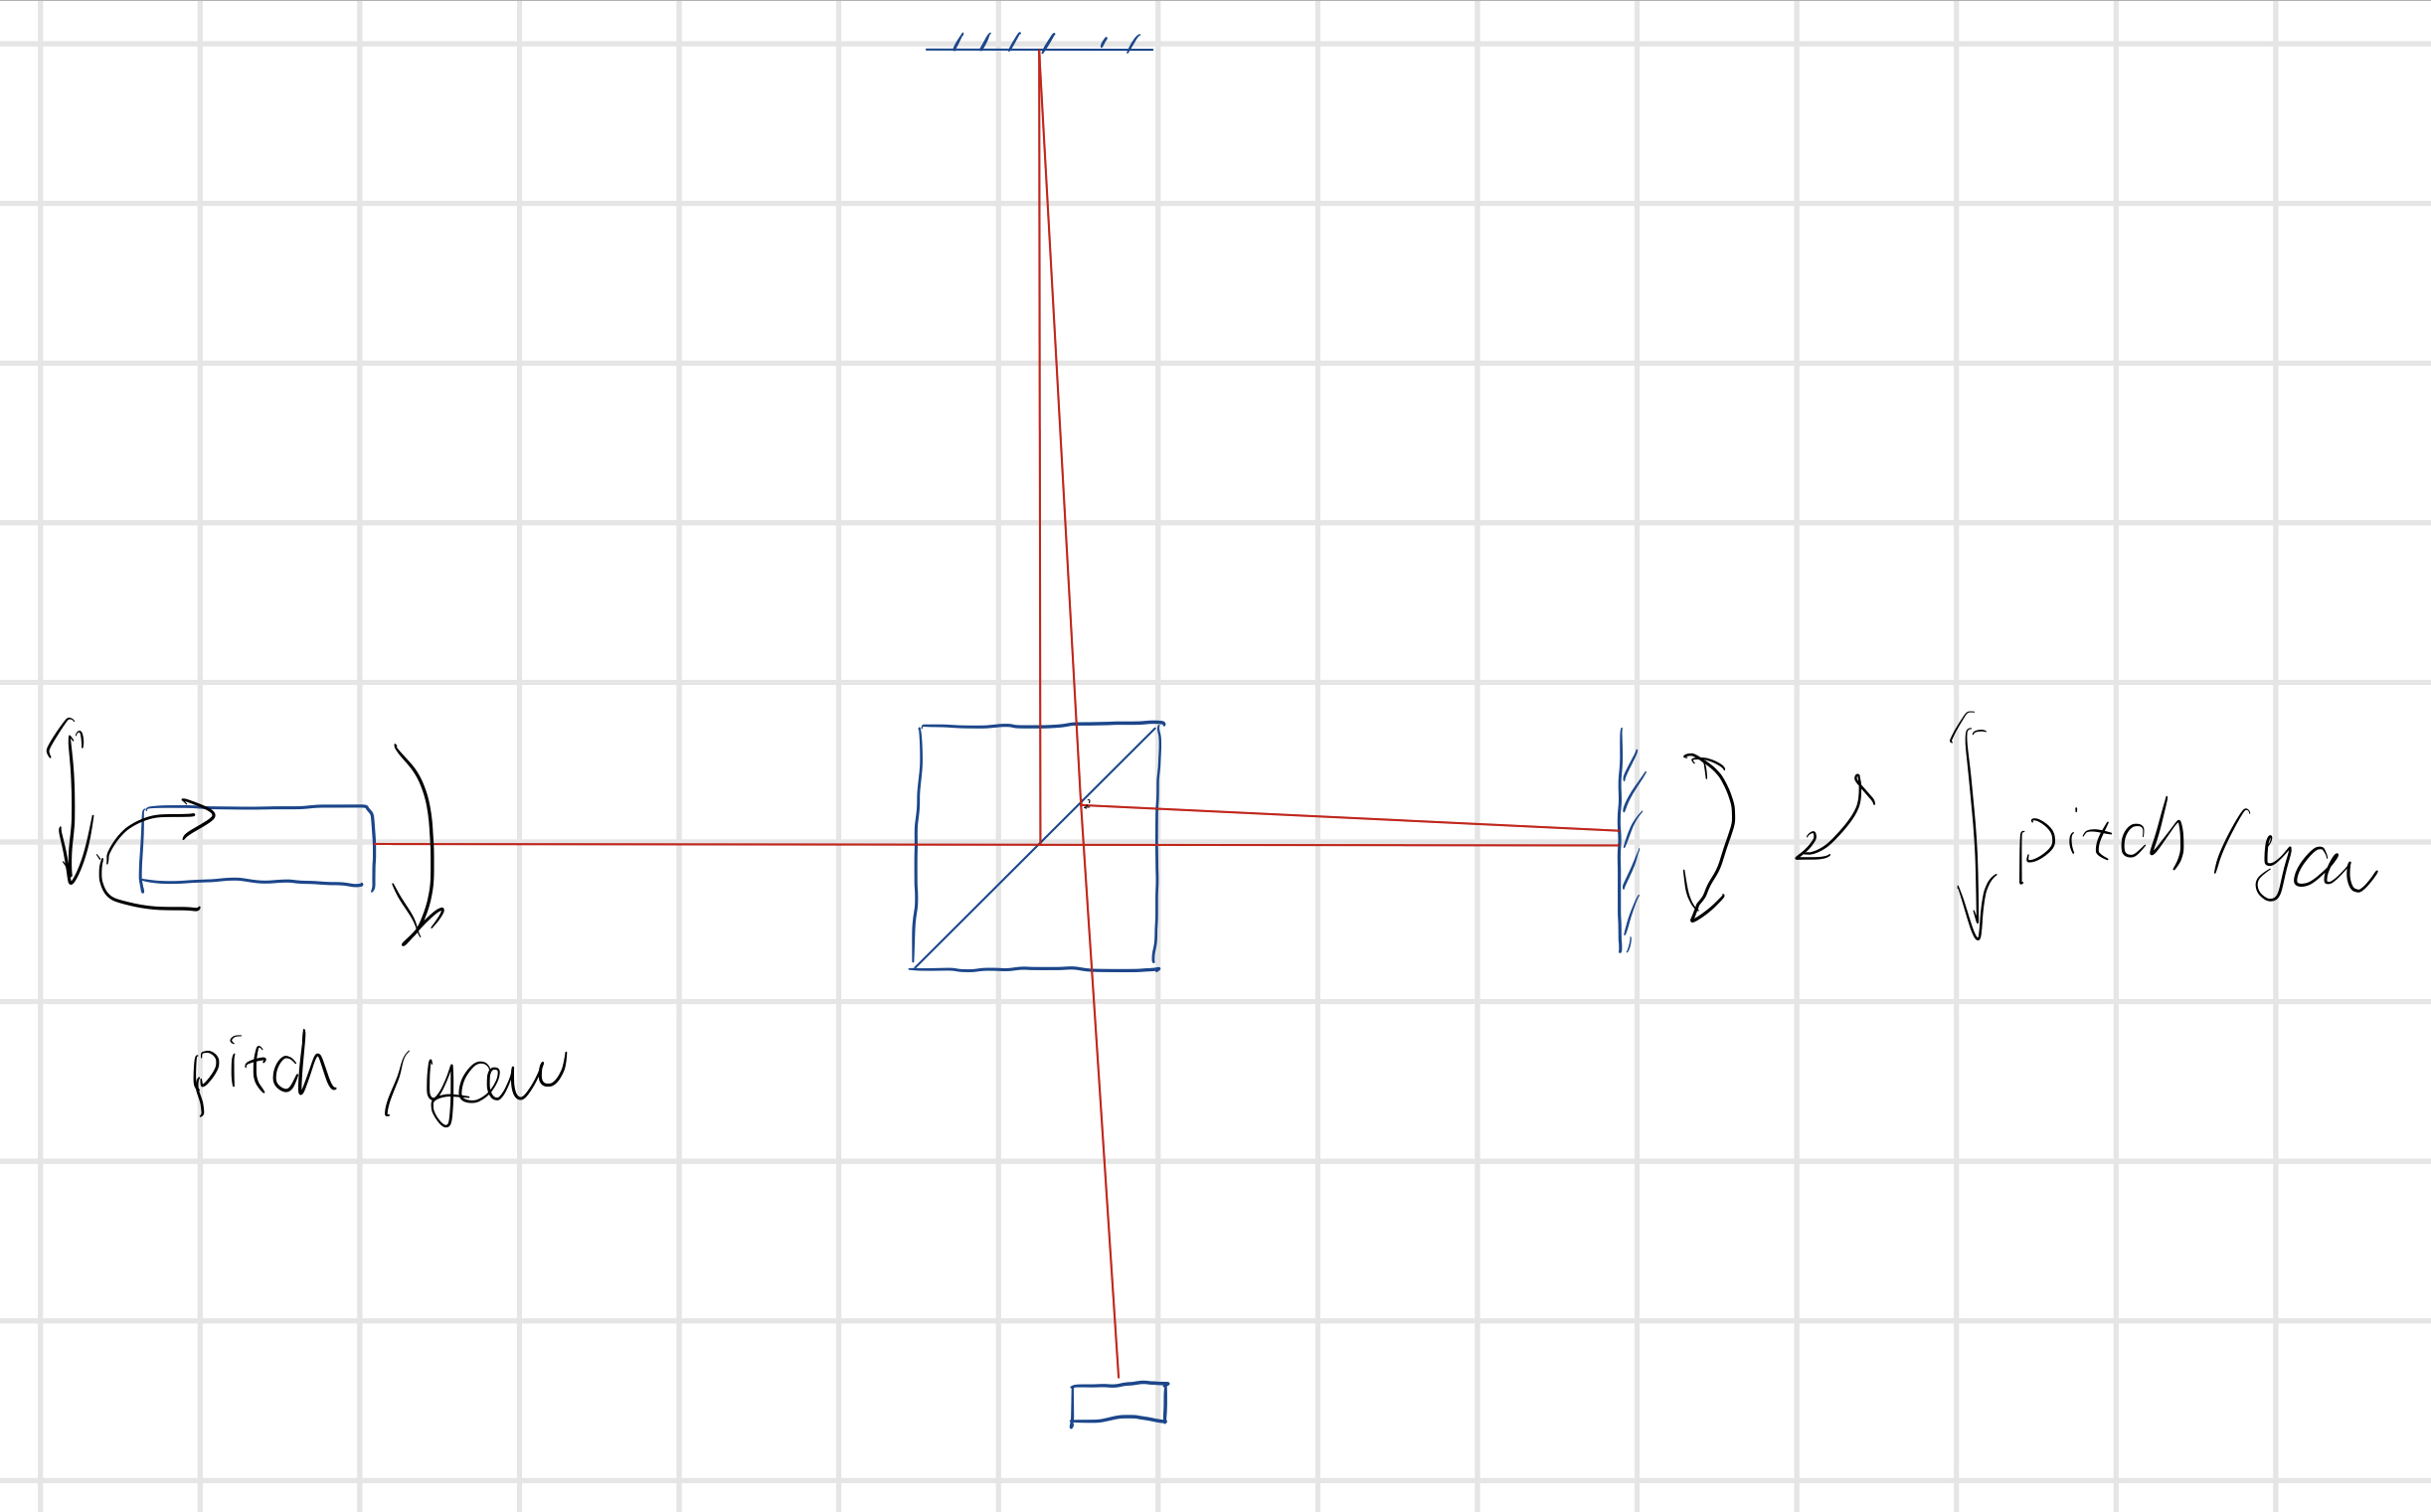 pitch / yaw
pitch / yaw